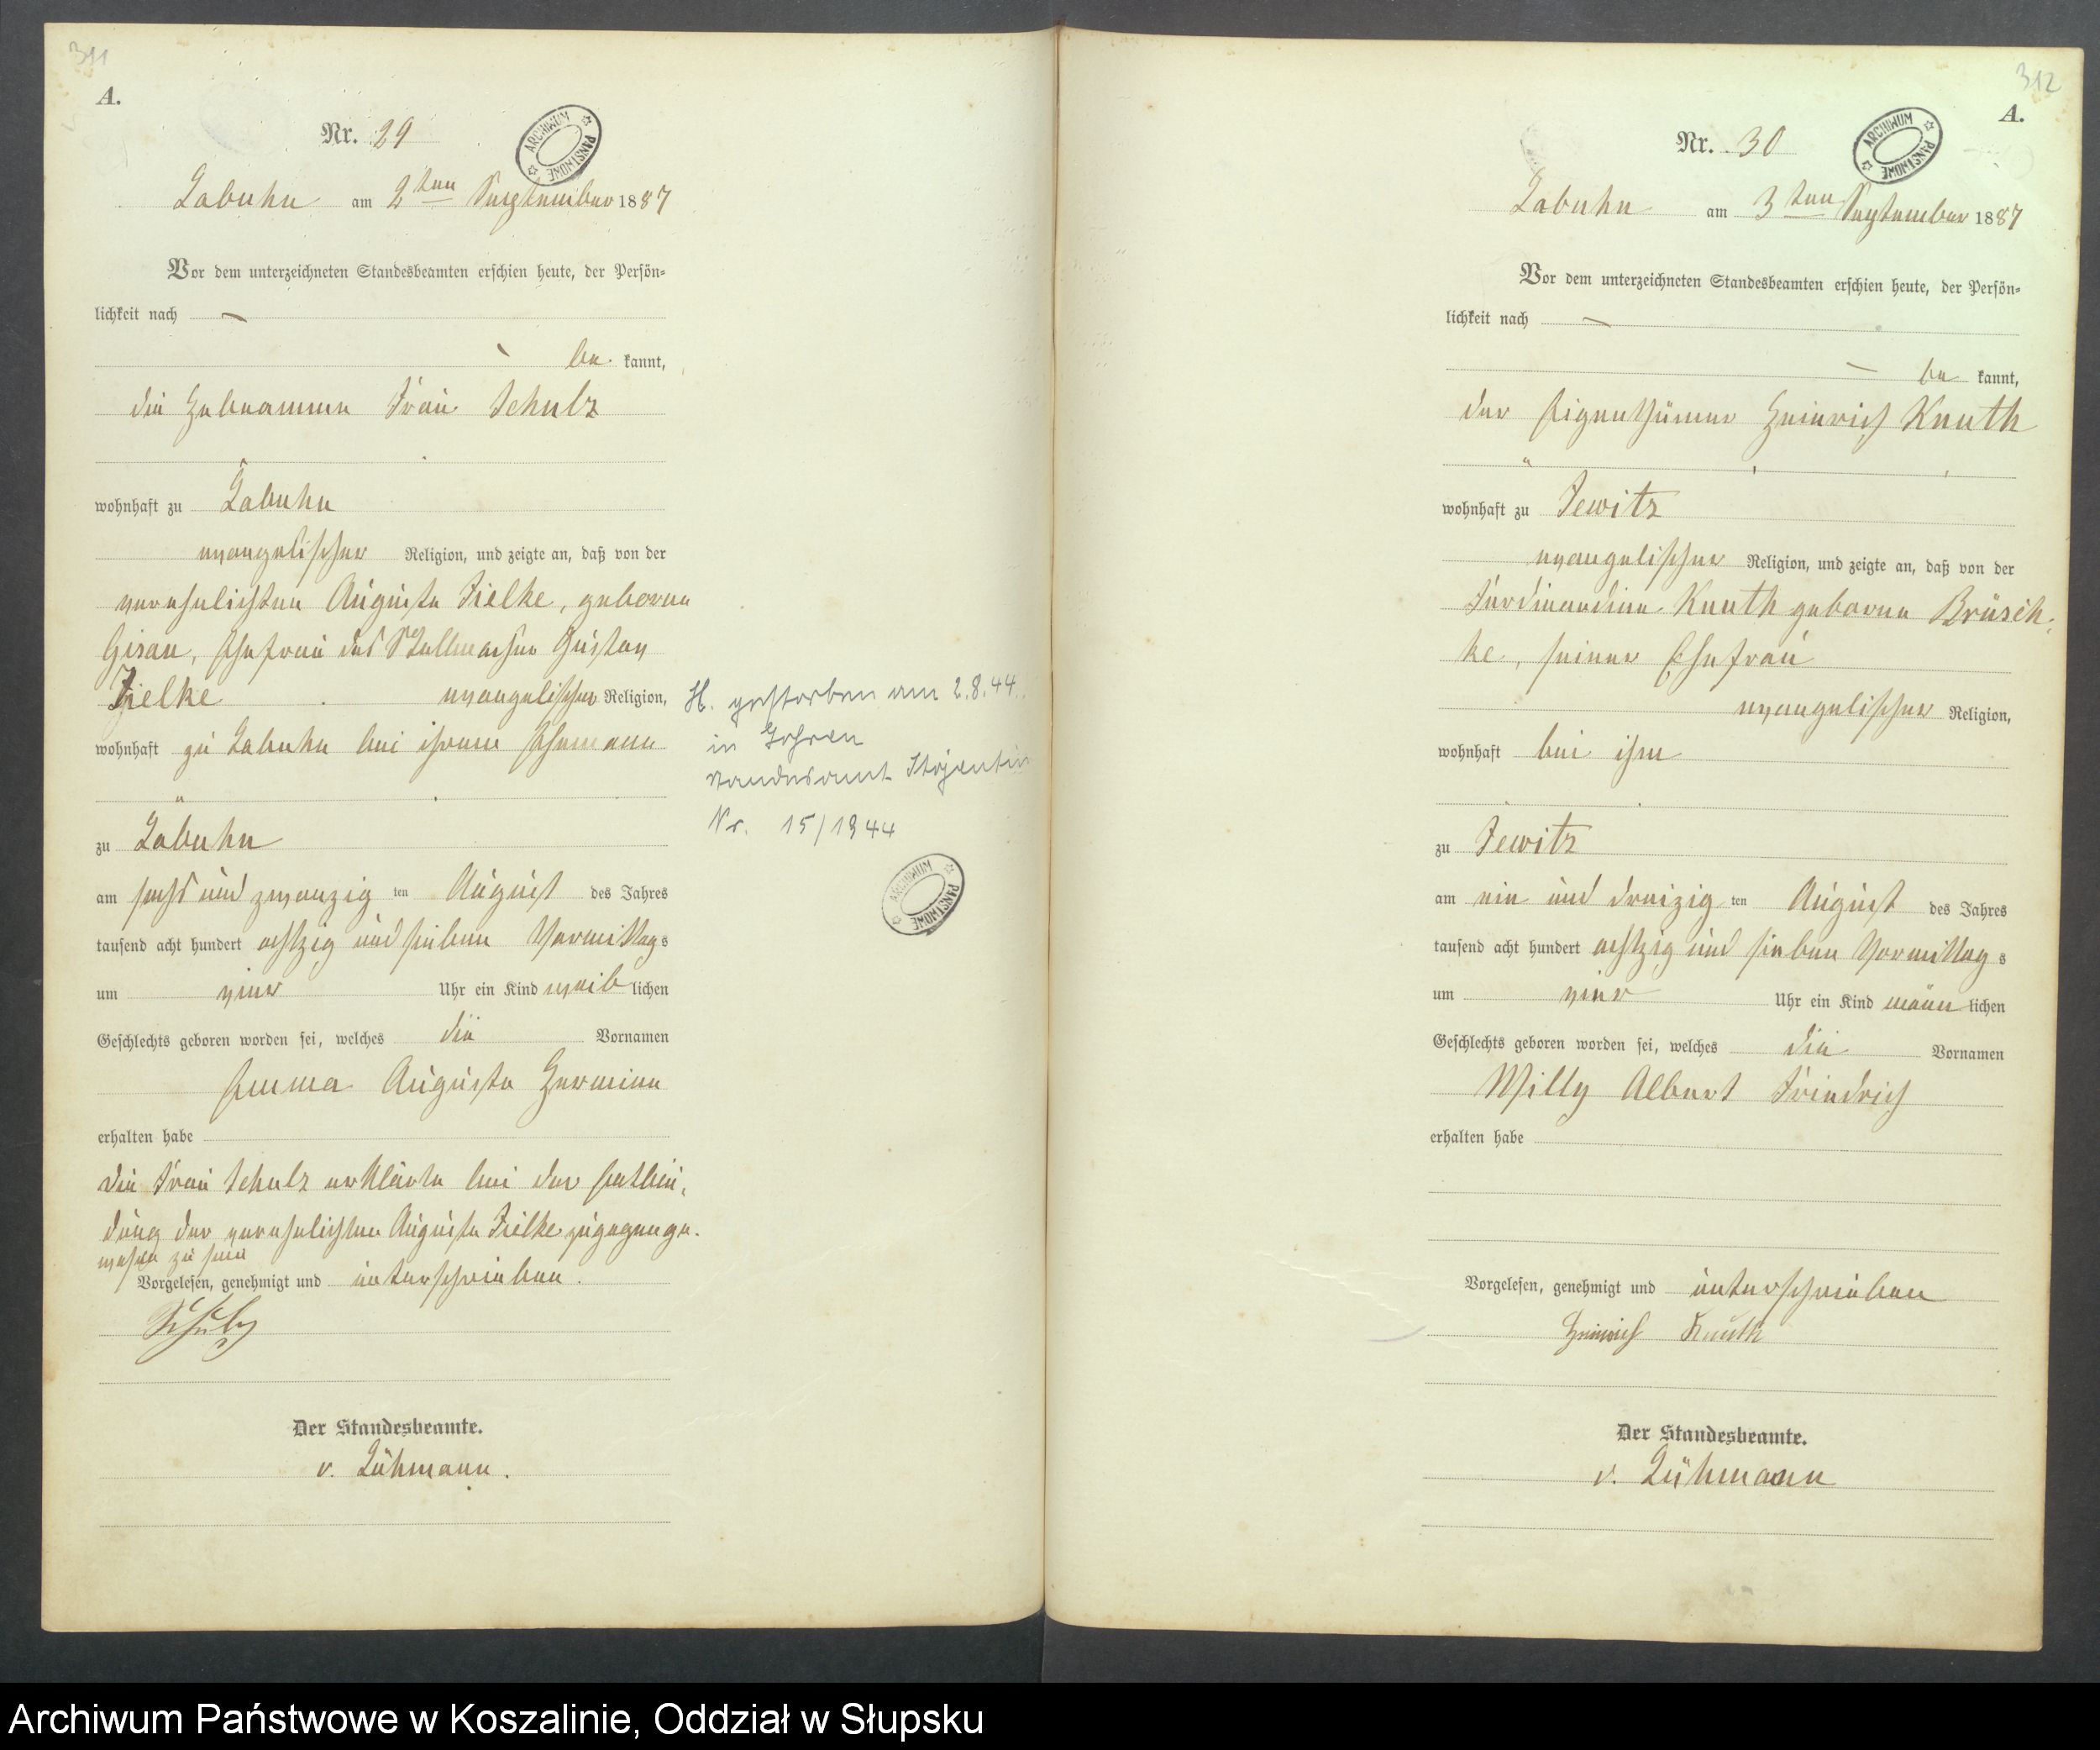 311
A.
Nr. 29
ARCHIWUM PAŃSTWOWE
Labuhn am 2ten September 1887
Vor dem unterzeichneten Standesbeamten erschien heute, der Persön-
lichkeit nach —
be kannt,
die Hebeamme Frau Schulz
wohnhaft zu Labuhn
evangelischer Religion, und zeigte an, daß von der
verehelichten Auguste Zielke, geborne
Giran, Ehefrau des Stellmacher Gustav
Zielke evangelischer Religion,
wohnhaft zu Labuhn bei ihrem Ehemann
zu Labuhn
am sechs und zwanzig ten August des Jahres
tausend acht hundert achtzig und sieben Vormittag s
um vier Uhr ein Kind weib lichen
Geschlechts geboren worden sei, welches die Vornamen
Emma Auguste Hermine
erhalten habe
die Frau Schulz erklärte bei der Entbin-
dung der verehelichten Auguste Zielke zugegen ge-
wesen zu sein
Vorgelesen, genehmigt und unterschrieben.
Schulz
Der Standesbeamte.
v. Lühmann.
H. gestorben am 2.8.44.
in Gohren
Standesamt Stojentin
Nr. 15/1944
ARCHIWUM PAŃSTWOWE
312
A.
Nr. 30
ARCHIWUM PAŃSTWOWE
Labuhn am 3ten September 1887
Vor dem unterzeichneten Standesbeamten erschien heute, der Persön-
lichkeit nach —
— be kannt,
der Eigenthümer Heinrich Knuth
wohnhaft zu Jewitz
evangelischer Religion, und zeigte an, daß von der
Ferdinandine Knuth geborne Brüsch-
ke, seiner Ehefrau
evangelischer Religion,
wohnhaft bei ihm
zu Jewitz
am ein und dreizig ten August des Jahres
tausend acht hundert achtzig und sieben Vormittag s
um vier Uhr ein Kind männ lichen
Geschlechts geboren worden sei, welches die Vornamen
Willy Albert Friedrich
erhalten habe
Vorgelesen, genehmigt und unterschrieben
Heinrich Knuth
Der Standesbeamte.
v. Lühmann
Archiwum Państwowe w Koszalinie, Oddział w Słupsku